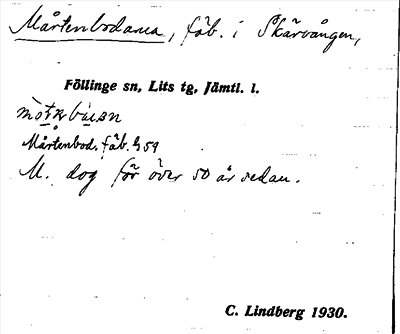 Mårtenbodarna, fäb. i Skärvången,
Föllinge sn, Lits tg, Jämtl. l.
Mårtenbod. fäb. h 59
M. dog för över 50 år sedan.
C. Lindberg 1930.